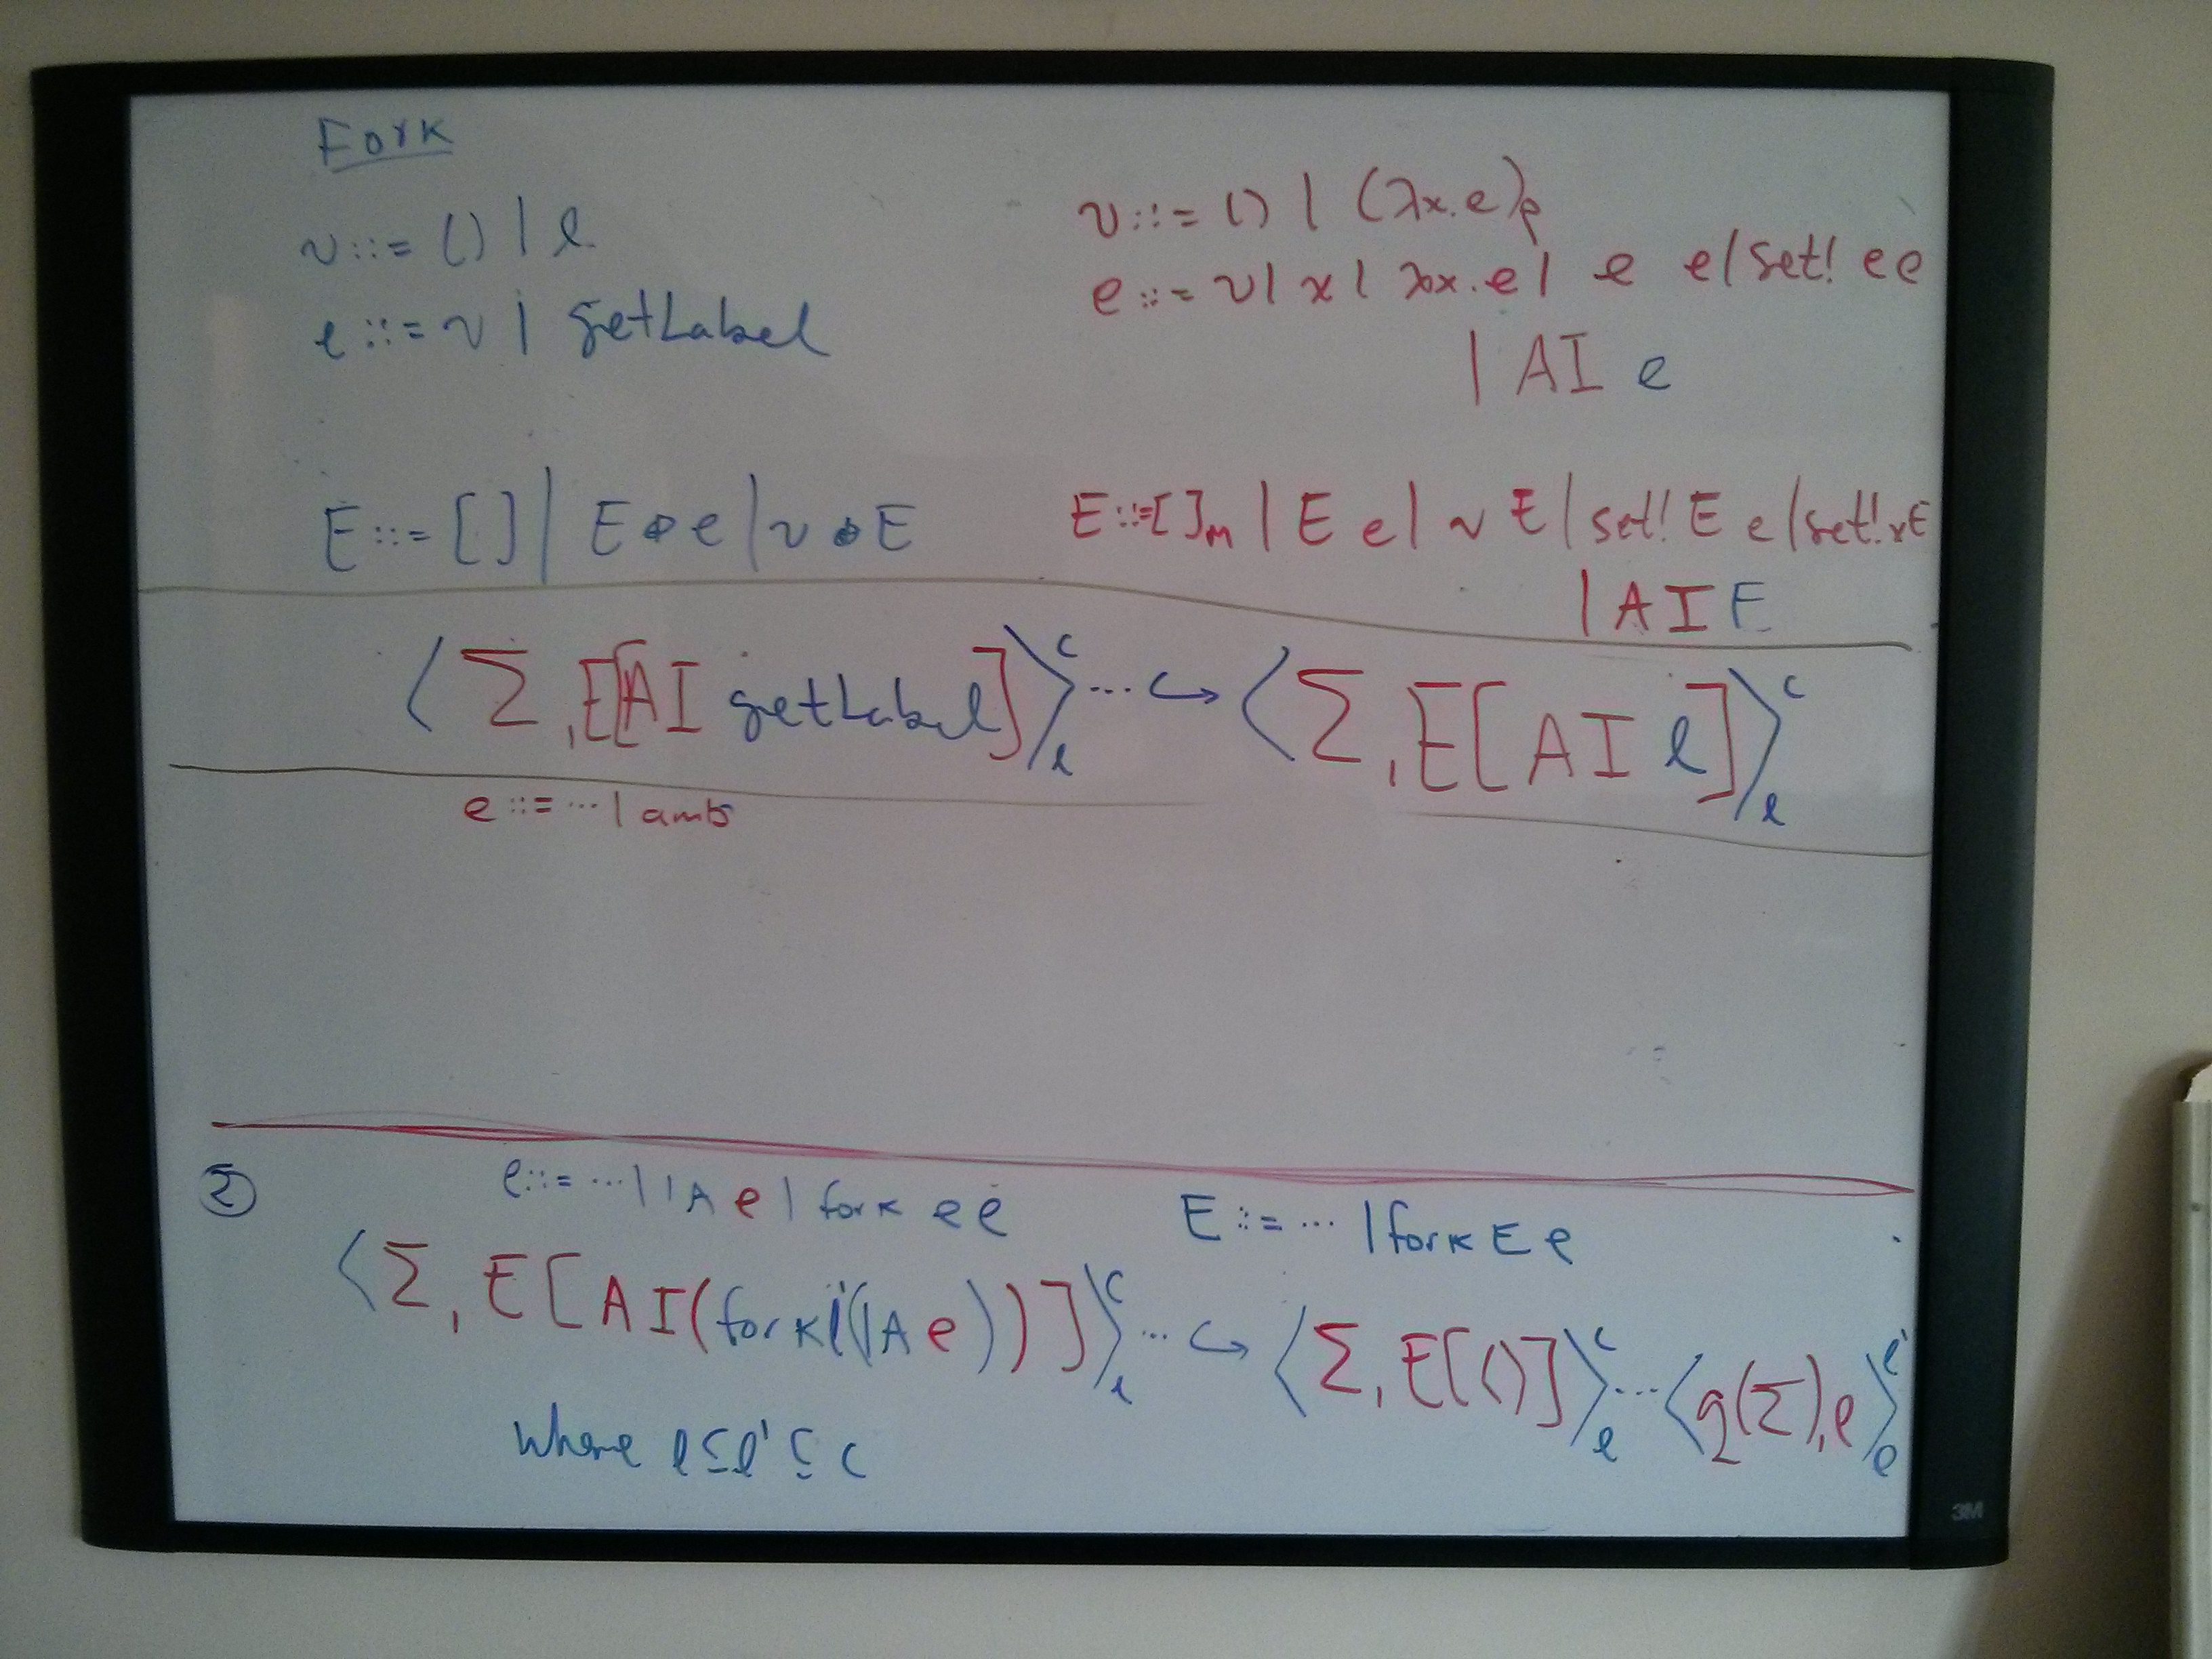 Fork
v ::= () | l
e ::= v | getLabel
v ::= () | (λx.e)ₑ
e ::= v | x | λx.e | e e | set! e e
| AI e
E ::= [] | E ⊕ e | v ⊕ E
E ::= []ₘ | E e | v E | set! E e | set! v E
| AI E
⟨Σ, E[AI getLabel]⟩ᶜₗ ... ↪ ⟨Σ, E[AI l]⟩ᶜₗ
e ::= ... | amb
② e ::= ... | IA e | fork e e E ::= ... | fork E e
⟨Σ, E[AI(fork l'(IA e))]⟩ᶜₗ ... ↪ ⟨Σ, E[()]⟩ᶜₗ ... ⟨g(Σ), e⟩ˡ'ₗ
where l ⊆ l' ⊆ c
3M